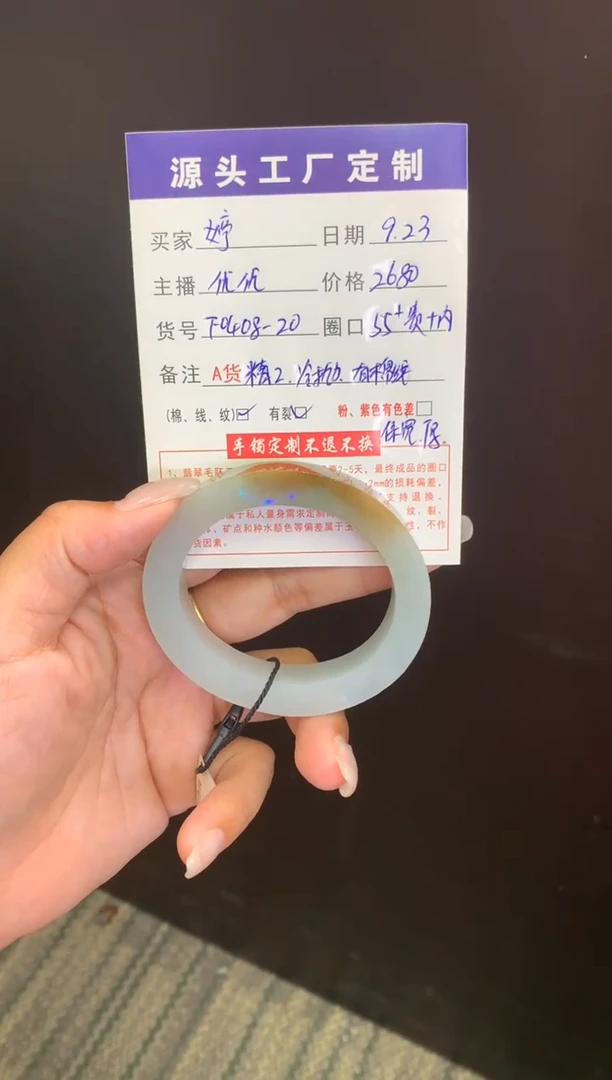 源头工厂定制
买家 婷 日期 9.23
主播 优优 价格 2680
货号 T-0408-20 圈口 55+贵+内
备注 A货 精2.
(棉、线、纹)☑ 有裂☑ 粉、紫色有色差☐
保宽.厚.
手镯定制不退不换
1、翡翠毛胚 2-5天，最终成品的圈口
2mm的损耗偏差，
支持退换．
属于私人量身需求定制 纹，裂，
、矿点和种水颜色等偏差属于玉 性，不作
因素。